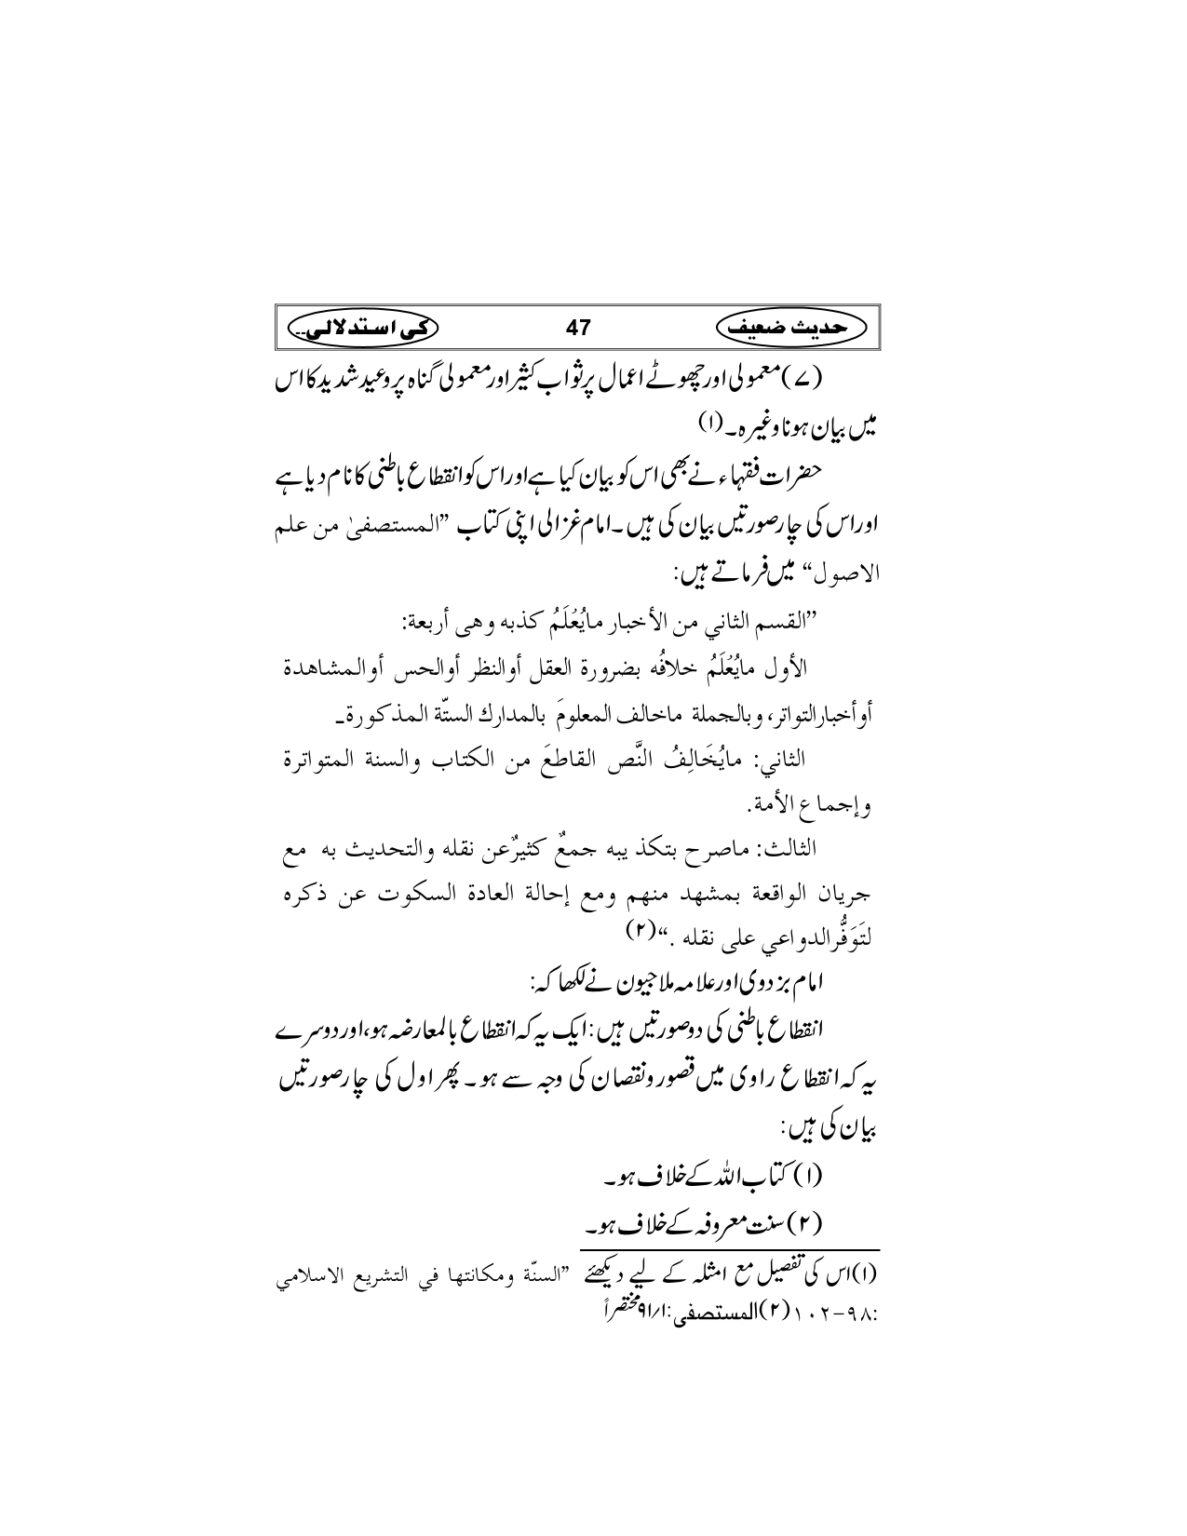 حدیث ضعیف 47 کی استدلالی۔۔
(۷) معمولی اور چھوٹے اعمال پر ثواب کثیر اور معمولی گناہ پر وعید شدید کا اس
میں بیان ہونا وغیرہ۔ (۱)
حضرات فقہاء نے بھی اس کو بیان کیا ہے اور اس کو انقطاع باطنی کا نام دیا ہے
اور اس کی چار صورتیں بیان کی ہیں۔ امام غزالی اپنی کتاب ”المستصفیٰ من علم
الاصول“ میں فرماتے ہیں:
”القسم الثاني من الأخبار مایُعْلَمُ کذبه وهی أربعة:
الأول مایُعْلَمُ خلافُه بضرورة العقل أوالنظر أوالحس أوالمشاهدة
أوأخبارالتواتر، وبالجملة ماخالف المعلومَ بالمدارك الستّة المذكورة۔
الثاني: مایُخَالِفُ النَّص القاطعَ من الكتاب والسنة المتواترة
وإجماع الأمة.
الثالث: ماصرح بتکذ یبه جمعٌ کثیرٌعن نقله والتحدیث به مع
جریان الواقعة بمشهد منهم ومع إحالة العادة السكوت عن ذكره
لتَوَفُّرالدواعي على نقله .“(۲)
امام بزدوی اور علامہ ملا جیون نے لکھا کہ:
انقطاع باطنی کی دوصورتیں ہیں: ایک یہ کہ انقطاع بالمعارضہ ہو، اور دوسرے
یہ کہ انقطاع راوی میں قصور ونقصان کی وجہ سے ہو۔ پھر اول کی چار صورتیں
بیان کی ہیں:
(۱) کتاب اللہ کے خلاف ہو۔
(۲) سنت معروفہ کے خلاف ہو۔
(۱) اس کی تفصیل مع امثلہ کے لیے دیکھئے ”السنّة ومكانتها في التشريع الاسلامي
:۹۸-۱۰۲ (۲) المستصفی: ۱/۹۱ مختصراً